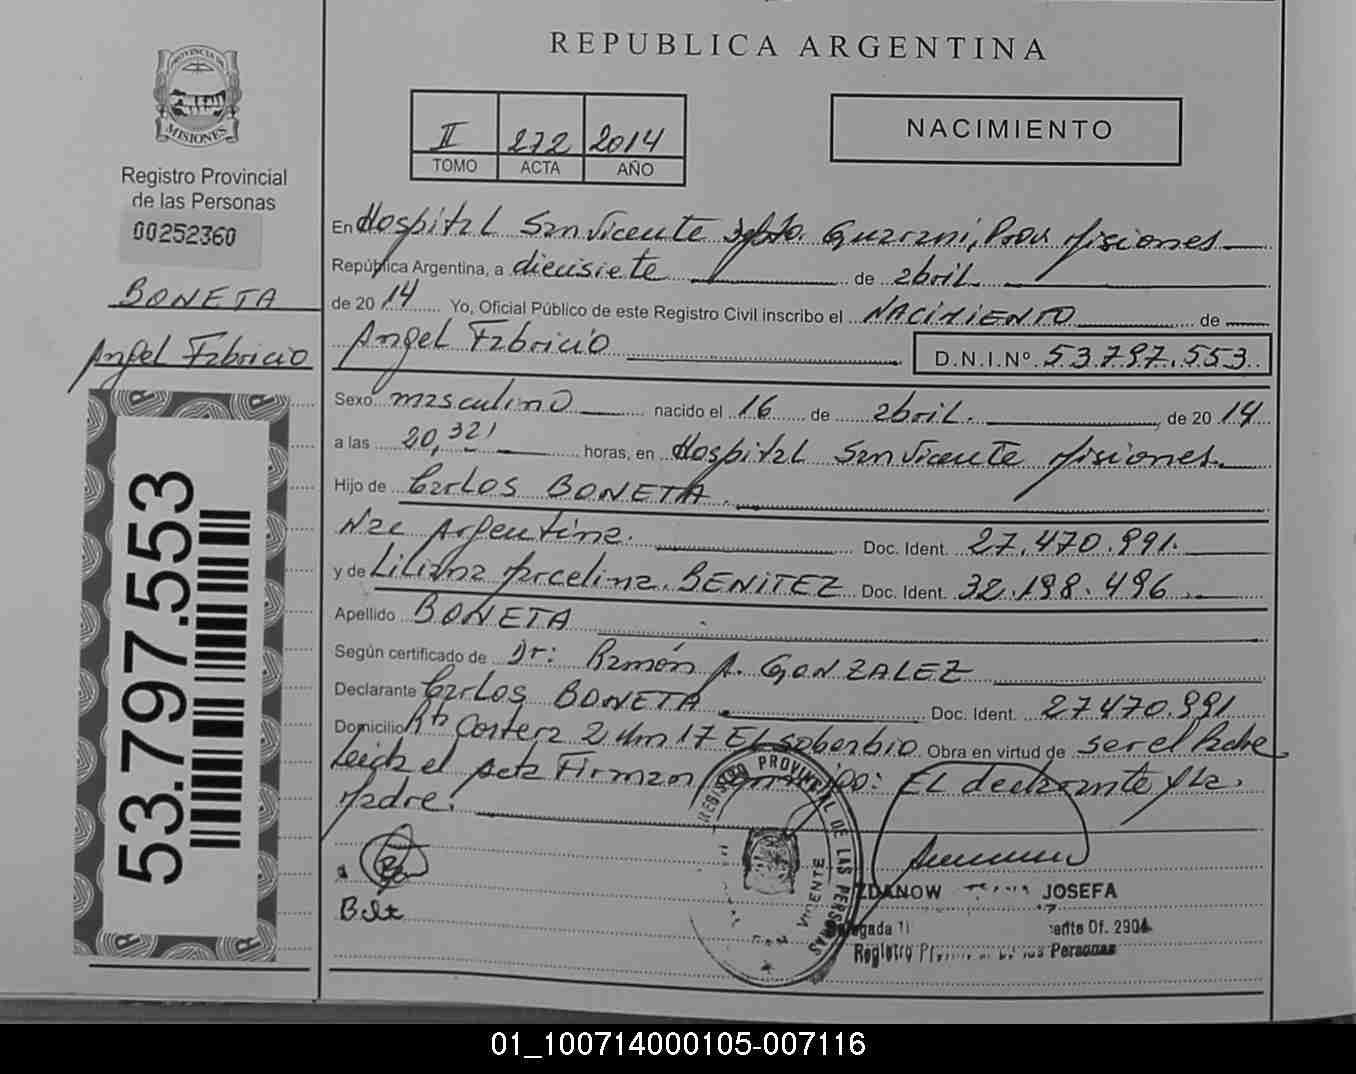 REPUBLICA ARGENTINA
PROVINCIA DE
MISIONES
Registro Provincial
de las Personas
00252360
BONETA
Angel Fabricio
53.797.553
II 272 2014
TOMO ACTA AÑO
NACIMIENTO
En Hospital San Vicente Dpto. Guarani, Prov Misiones
República Argentina, a diecisiete de abril
de 2014 Yo, Oficial Público de este Registro Civil inscribo el NACIMIENTO de
Angel Fabricio D.N.I.Nº 53.797.553
Sexo masculino nacido el 16 de abril. de 2014
a las 20,32 horas, en Hospital San Vicente Misiones.
Hijo de Carlos BONETA.
Nac Argentina. Doc. Ident. 27.470.991.
y de Liliana Marcelina BENITEZ Doc. Ident. 32.198.496
Apellido BONETA
Según certificado de Dr: Ramón A. GONZALEZ
Declarante Carlos BONETA Doc. Ident. 27470.991
Domicilio Rta Costera 2 Km 17 El Soberbio Obra en virtud de ser el Padre
Leida el Acta Firman : El declarante y la
Madre.
REGISTRO PROVINCIAL DE LAS PERSONAS
VICENTE
ZDANOW JOSEFA
Of. 2904
Registro de las Personas
01_100714000105-007116